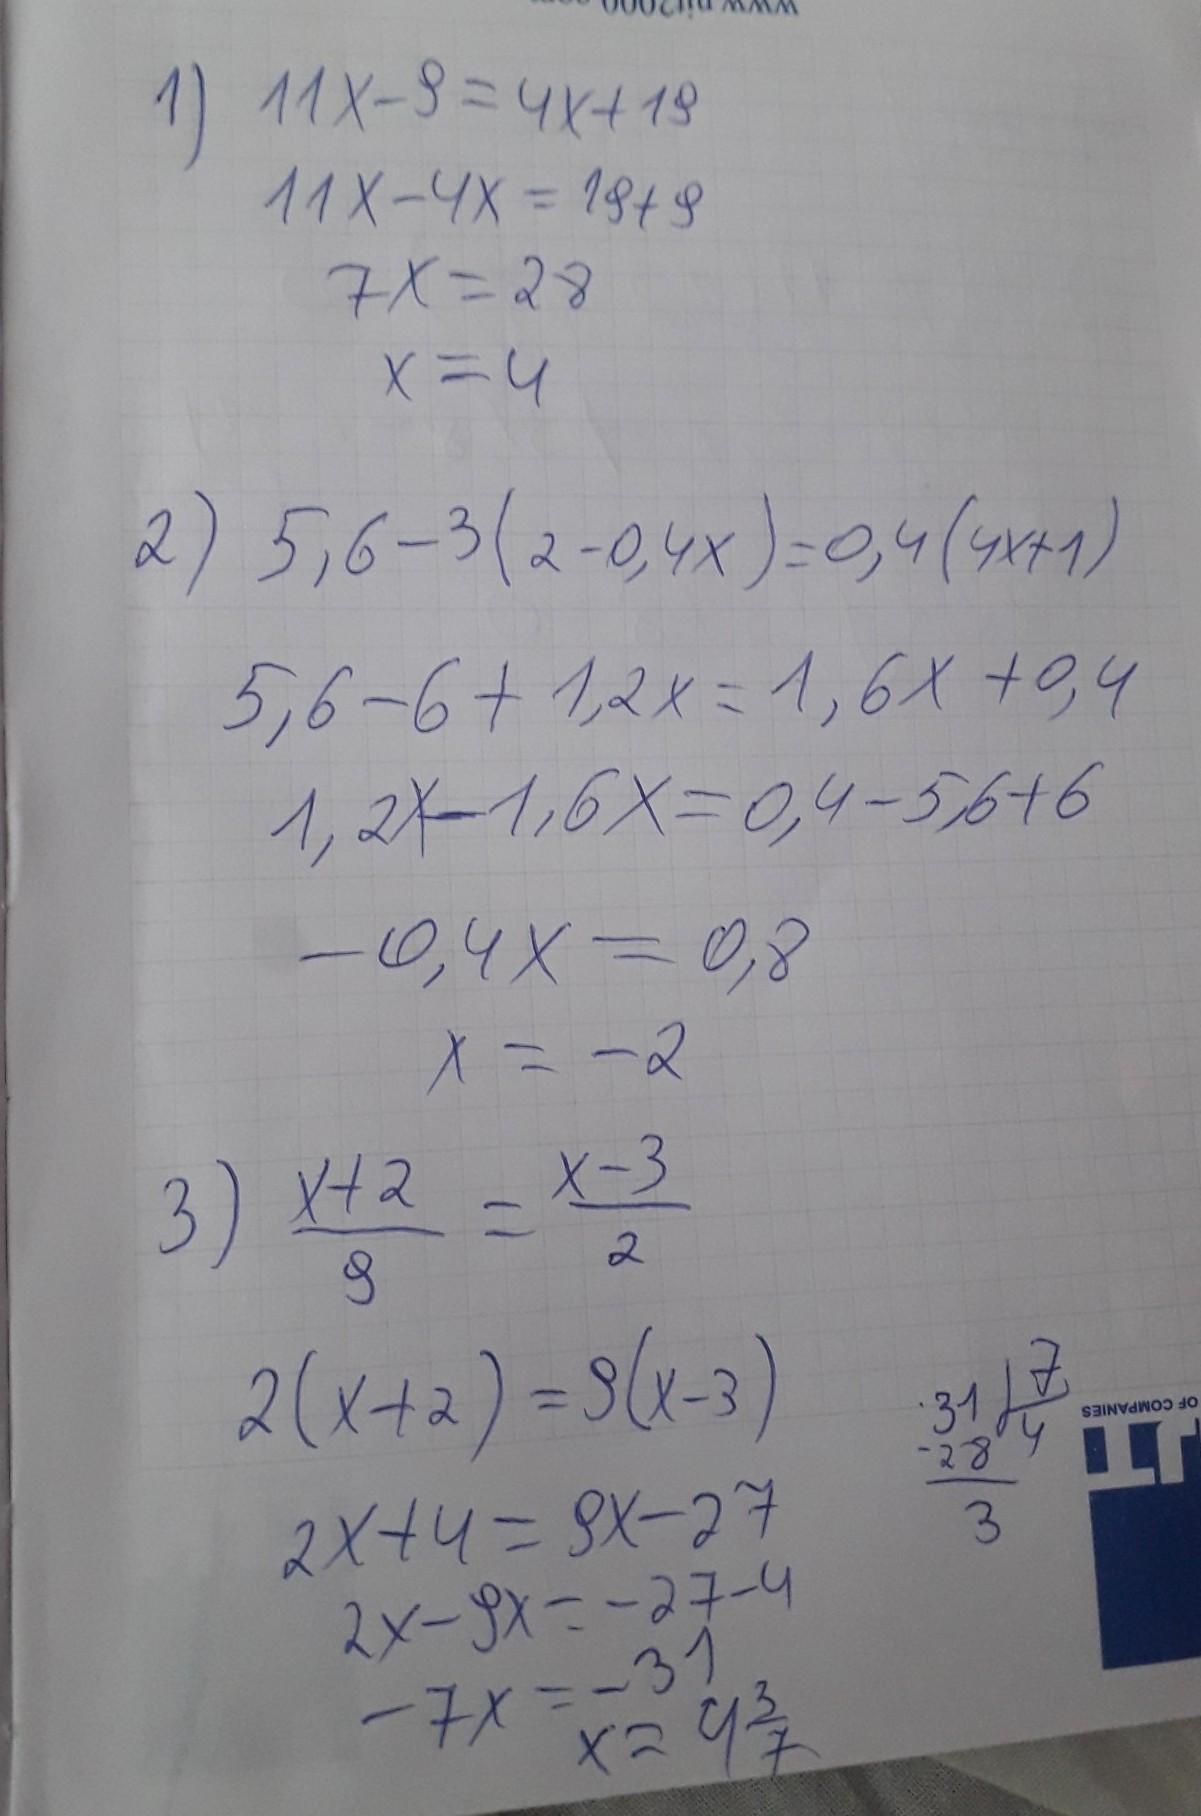 1) 11x-9=4x+19
11x-4x=19+9
7x=28
x=4
2) 5,6-3(2-0,4x)=0,4(4x+1)
5,6-6+1,2x=1,6x+0,4
1,2x-1,6x=0,4-5,6+6
-0,4x=0,8
x=-2
3) x+2/9=x-3/2
2(x+2)=9(x-3)
2x+4=9x-27
2x-9x=-27-4
-7x=-31
x=4 3/7
31 7
-28 4
3
OF COMPANIES